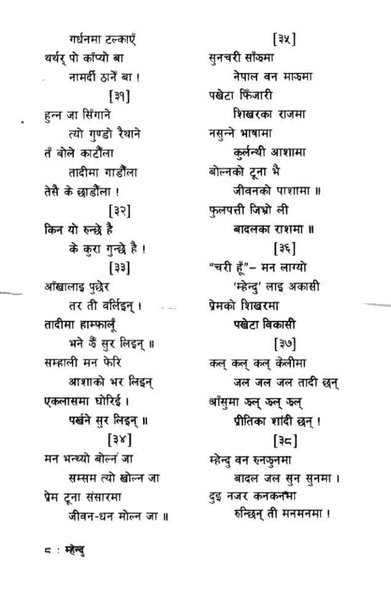 गर्धनमा टल्काएँ
थर्थर् पो काँप्यो बा
नामर्दी ठार्ने बा !
[३१]
हुन्न जा सिँगाने
त्यो गुण्डो रैथाने
तँ बोले काटौंला
तादीमा गाडौंला
तेसै के छाडौंला !
[३२]
किन यो रुन्छे है
के कुरा गुन्छे है !
[३३]
आँखालाइ पुछेर
तर ती वर्लिइन् ।
तादीमा हाम्फालूँ
भने झैँ सुर लिइन् ॥
सम्हाली मन फेरि
आशाको भर लिइन्
एकलासमा घोरिई ।
पर्खने सुर लिइन् ॥
[३४]
मन भन्थ्यो बोल्न जा
सम्सम त्यो खोल्न जा
प्रेम टूना संसारमा
जीवन-धन मोल्न जा ॥
[३५]
सुनचरी साँझमा
नेपाल वन माझमा
पखेटा फिँजारी
शिखरका राजमा
नसुन्ने भाषामा
कुर्लन्थी आशामा
बोल्नको टूना भै
जीवनको पाशामा ॥
फुलपत्ती जिभ्रो ली
बादलका राशमा ॥
[३६]
"चरी हूँ"– मन लाग्यो
'म्हेन्दु' लाइ अकासी
प्रेमको शिखरमा
पखेटा विकासी
[३७]
कल् कल् कल् केलीमा
जल जल जल तादी छन्
आँसुमा झल् झल् झल्
प्रीतिका शादी छन् !
[३८]
म्हेन्दु वन रुनझुनमा
बादल जल सुन सुनमा ।
दुइ नजर कनकनमा
रुन्छिन् ती मनमनमा !
८ : म्हेन्दु